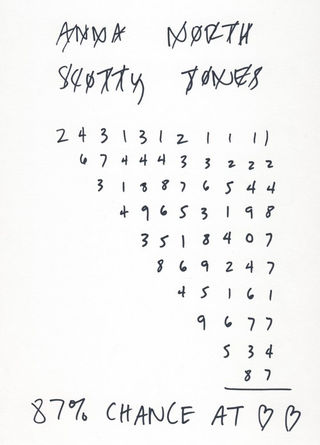 ANNA NORTH
SCOTTY JONES
2 4 3 1 3 1 2 1 1 1 1
6 7 4 4 4 3 3 2 2 2
3 1 8 8 7 6 5 4 4
4 9 6 5 3 1 9 8
3 5 1 8 4 0 7
8 6 9 2 4 7
4 5 1 6 1
9 6 7 7
5 3 4
8 7
87% CHANCE AT ♡ ♡